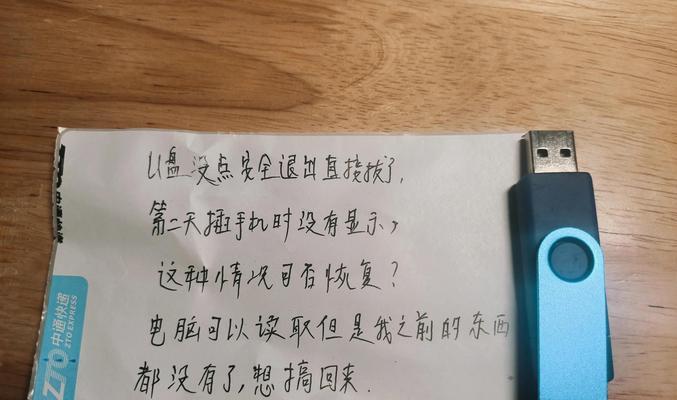 U盘没点安全退出直接拔了,
第二天插手机时没有显示,
这种情况可否恢复?
电脑可以读取但是我之前的东西
都没有了,想搞回来.
中通快递
ZTO EXPRESS
ZTO